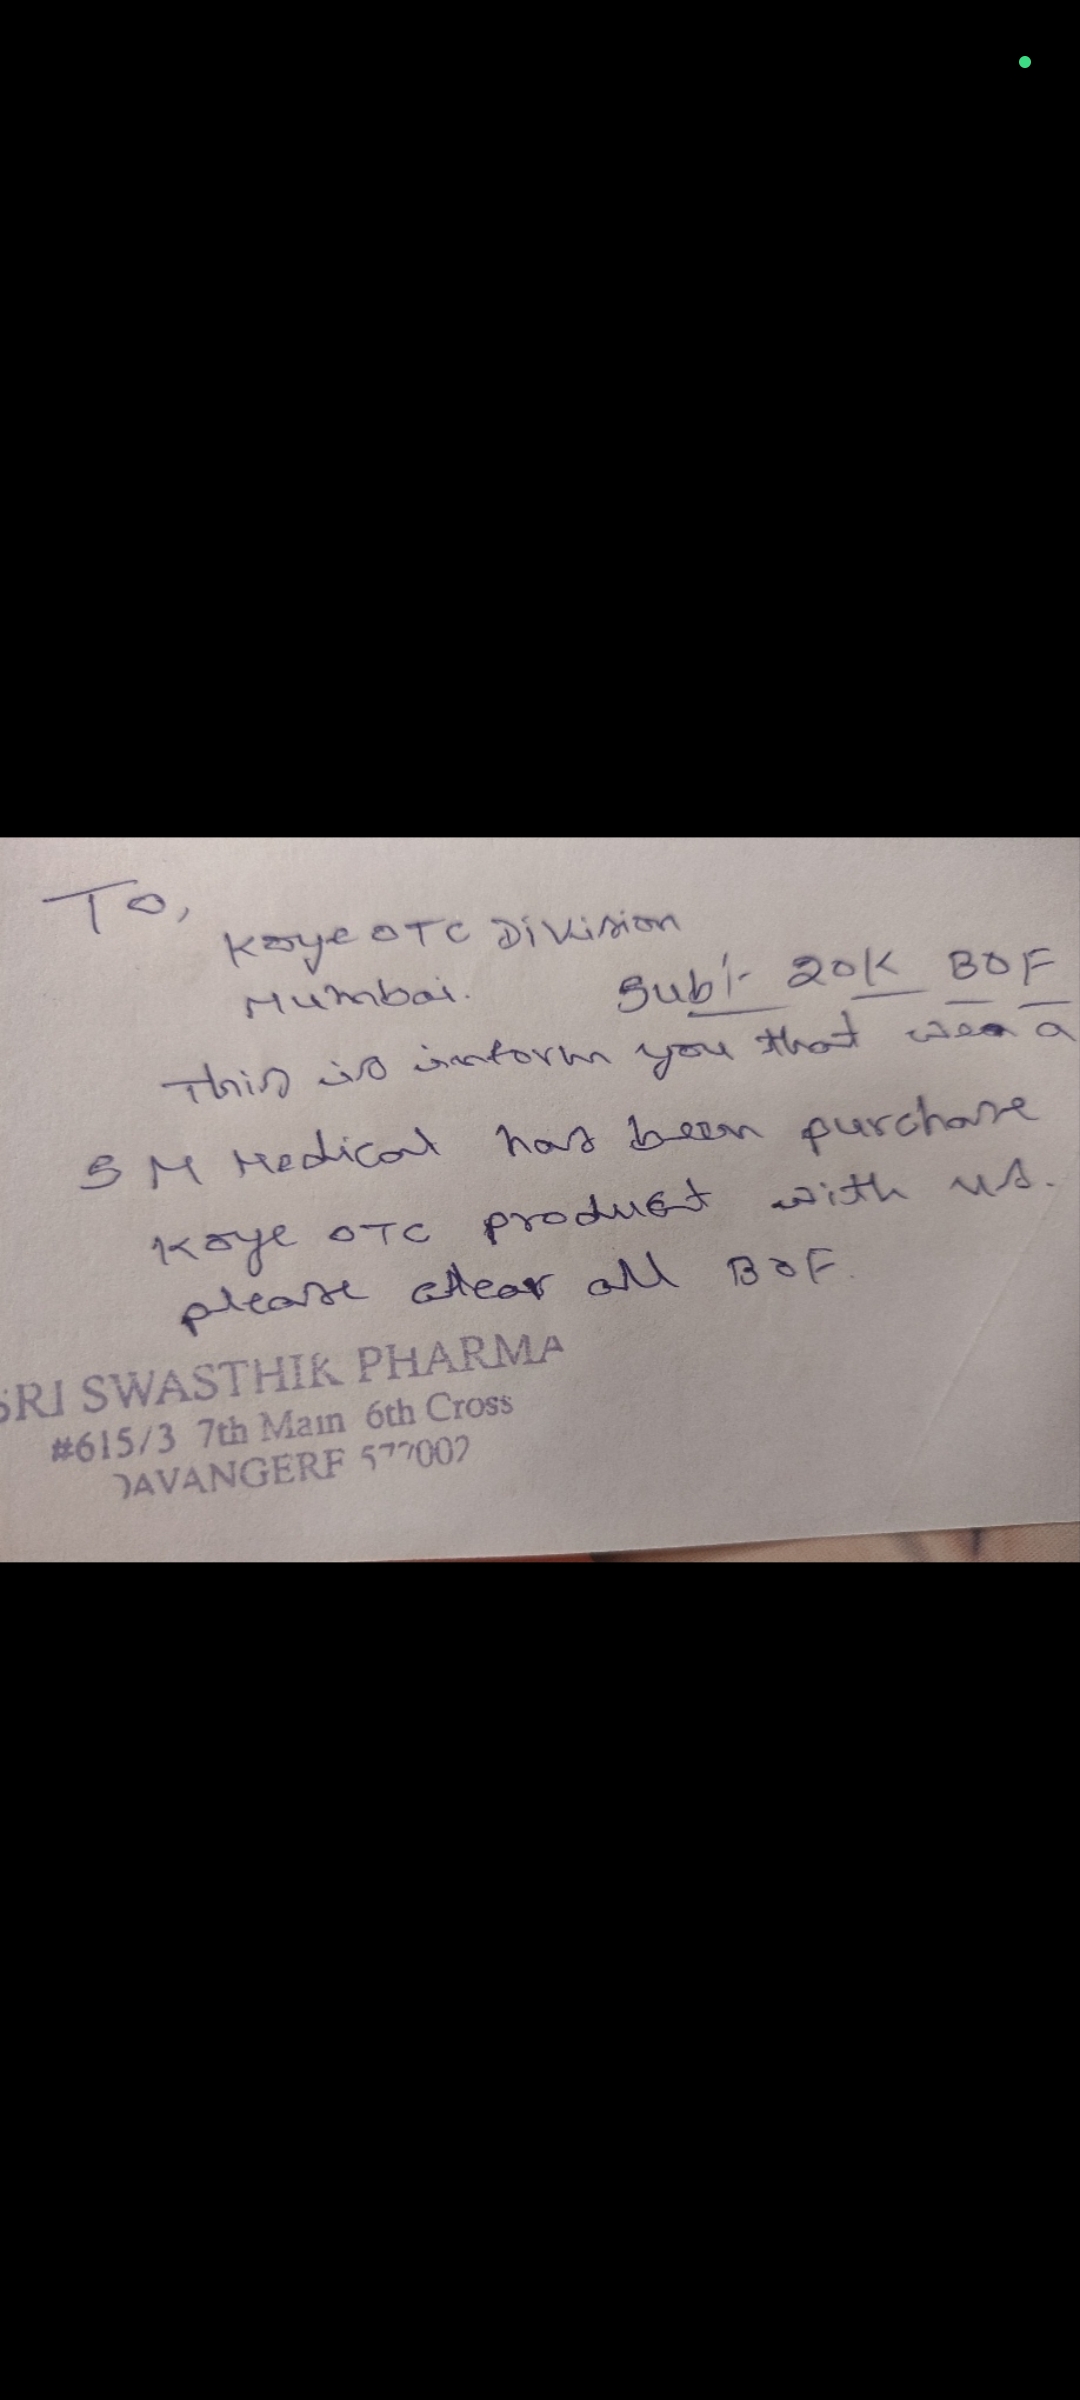 To,
Koye OTC Division
Mumbai. Sub:- 20K BOF
This is inform you that
S M Medical has been purchase
Koye OTC product with us.
please clear all BOF.
SRI SWASTHIK PHARMA
#615/3 7th Main 6th Cross
DAVANGERE 577002